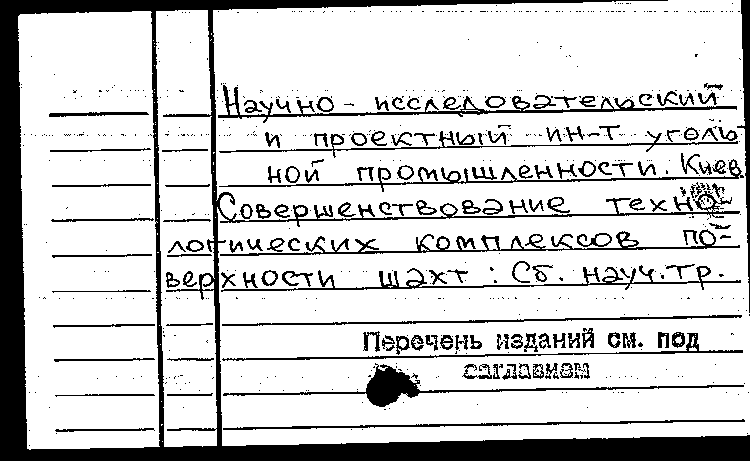 Научно - исследовательский
и проектный ин-т уголь
ной промышленности. Киев
Совершенствование техно-
логических комплексов по-
верхности шахт : Сб. науч.тр.
Перечень изданий см. под
заглавием